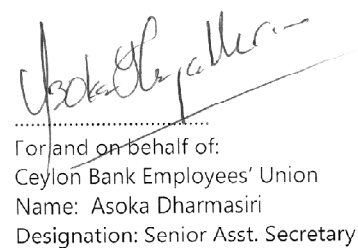 For and on behalf of:
Ceylon Bank Employees' Union
Name: Asoka Dharmasiri
Designation: Senior Asst. Secretary